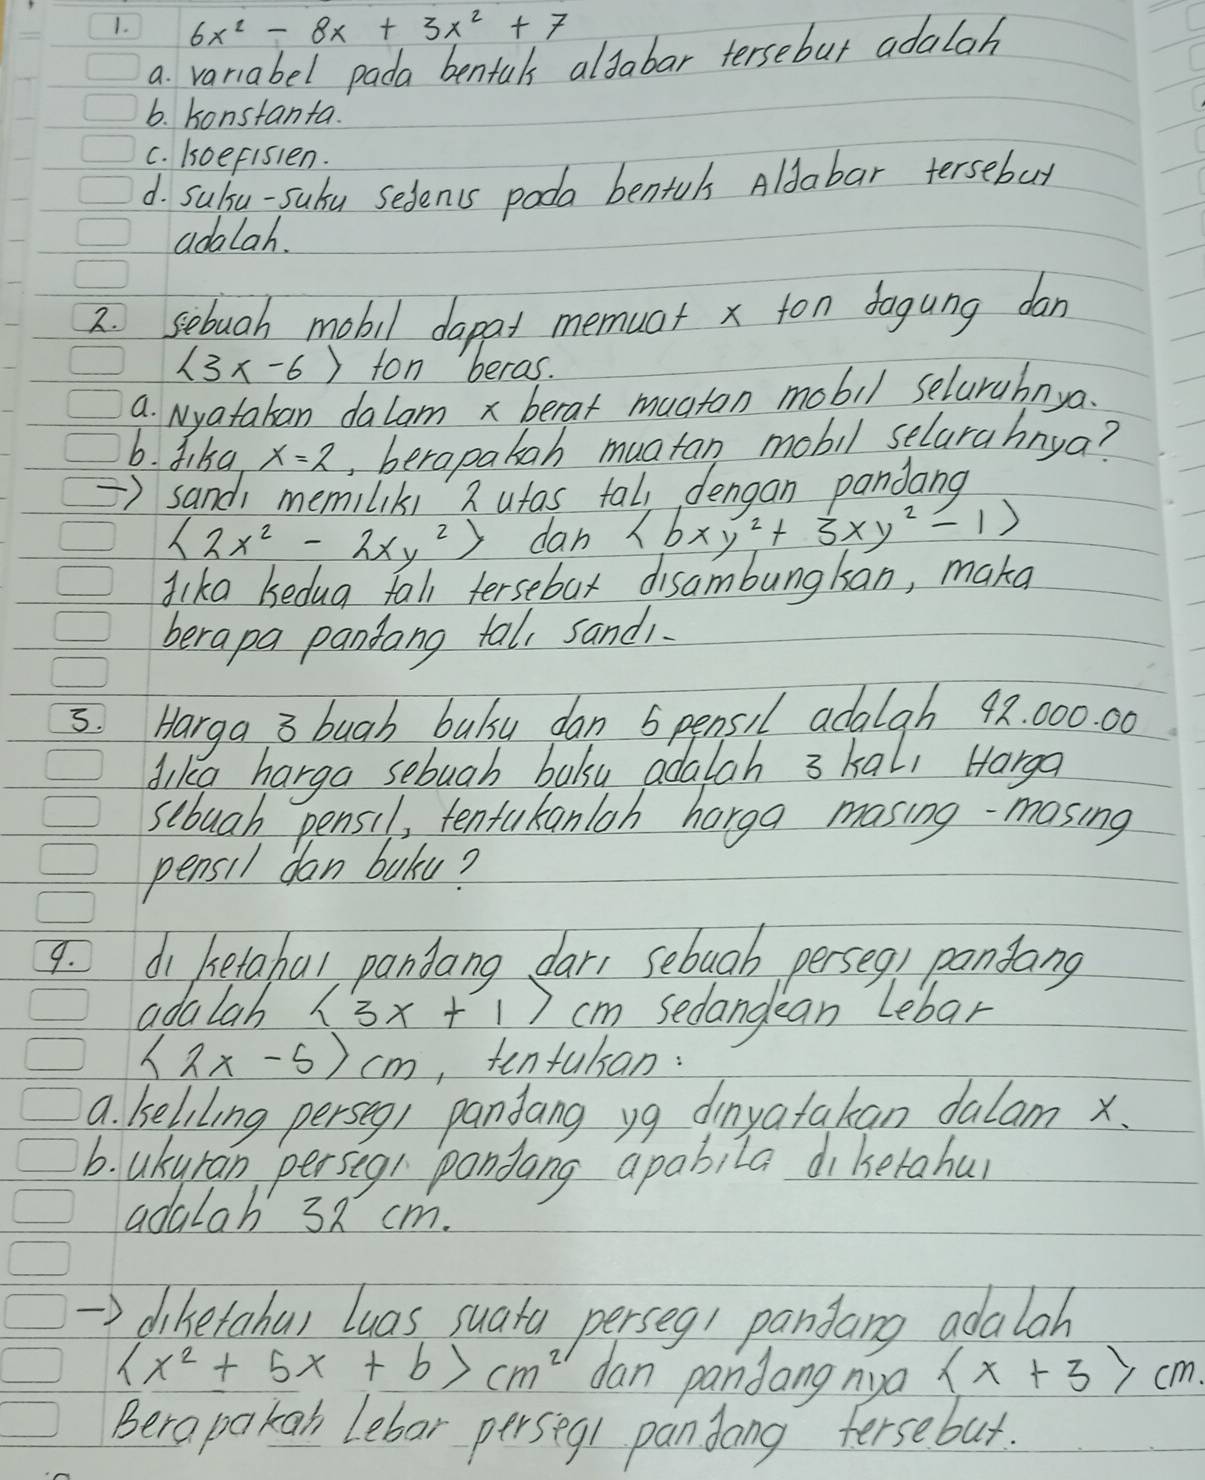 1. 6x² - 8x + 3x² + 7
a. variabel pada bentuk aljabar tersebut adalah
b. konstanta.
c. koefisien.
d. suku-suku sejenis pada bentuk Aljabar tersebut
adalah.
2. sebuah mobil dapat memuat x ton jagung dan
(3x-6) ton beras.
a. Nyatakan dalam x berat muatan mobil seluruhnya.
b. Jika x=2, berapakah muatan mobil selurahnya?
-> sandi memiliki 2 utas tali dengan panjang
(2x² - 2xy²) dan (6xy² + 3xy² - 1)
Jika kedua tali tersebut disambungkan, maka
berapa panjang tali sandi.
3. Harga 3 buah buku dan 5 pensil adalah 42.000.00
Jika harga sebuah buku adalah 3 kali Harga
sebuah pensil, tentukanlah harga masing-masing
pensil dan buku?
4. di ketahui panjang dari sebuah persegi panjang
adalah (3x + 1) cm sedangkan Lebar
(2x - 5) cm, tentukan:
a. keliling persegi panjang yg dinyatakan dalam x.
b. ukuran persegi panjang apabila diketahui
adalah 32 cm.
-> diketahui luas suatu persegi panjang adalah
(x² + 5x + 6) cm² dan panjangnya (x + 3) cm.
Berapakah Lebar persegi panjang tersebut.